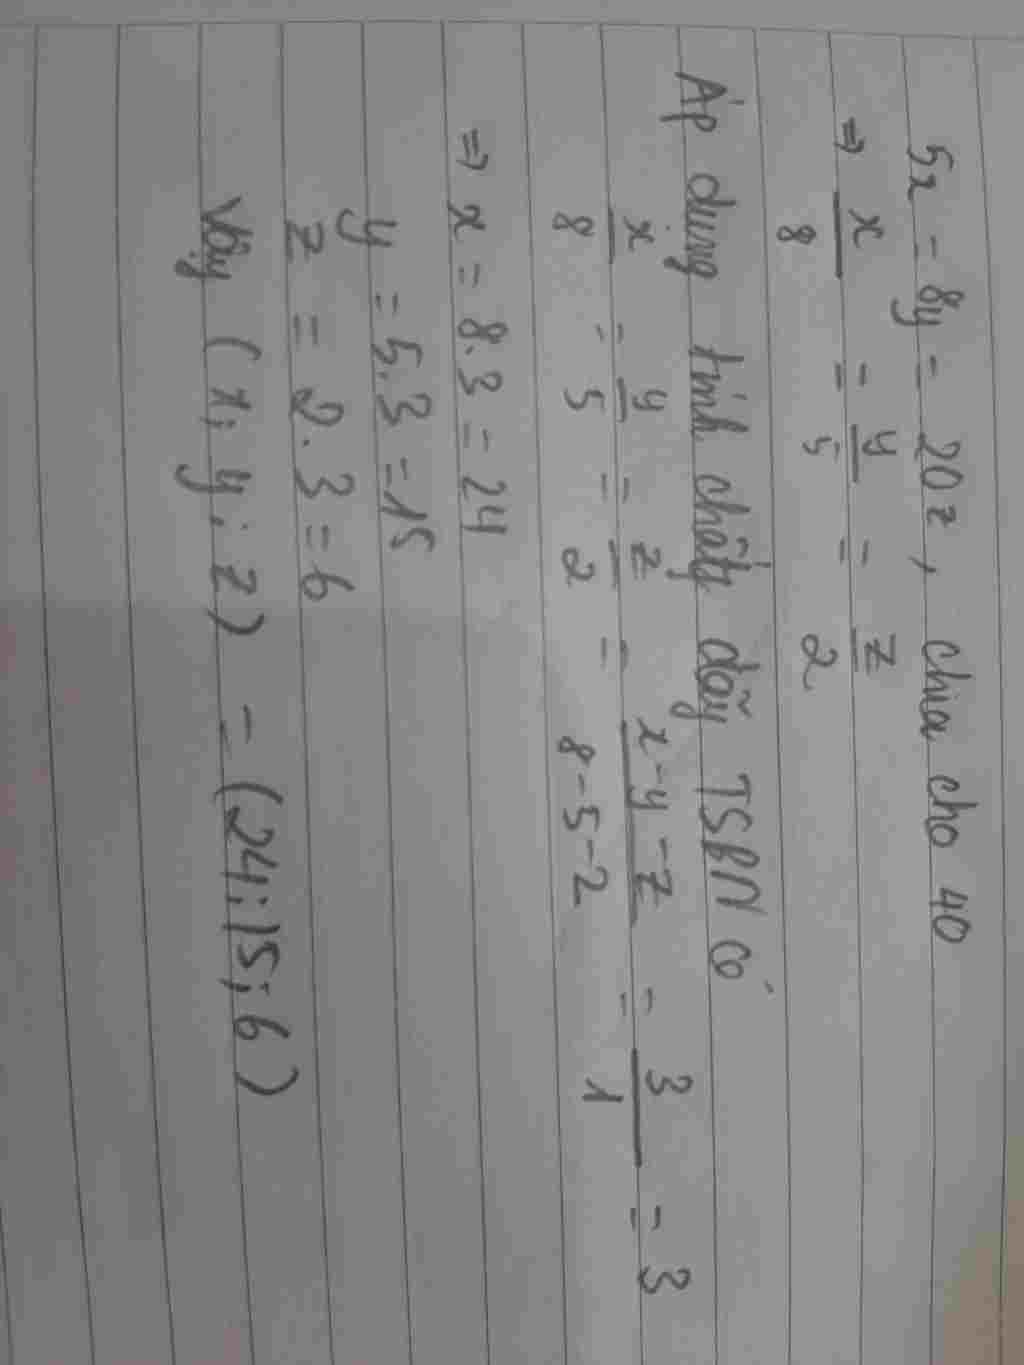 5x = 8y = 20z, chia cho 40
⇒ x/8 = y/5 = z/2
Áp dụng tính chất dãy TSBN có
x/8 = y/5 = z/2 = x-y-z/8-5-2 = 3/1 = 3
⇒ x = 8.3 = 24
y = 5.3 = 15
z = 2.3 = 6
Vậy (x; y; z) = (24; 15; 6)